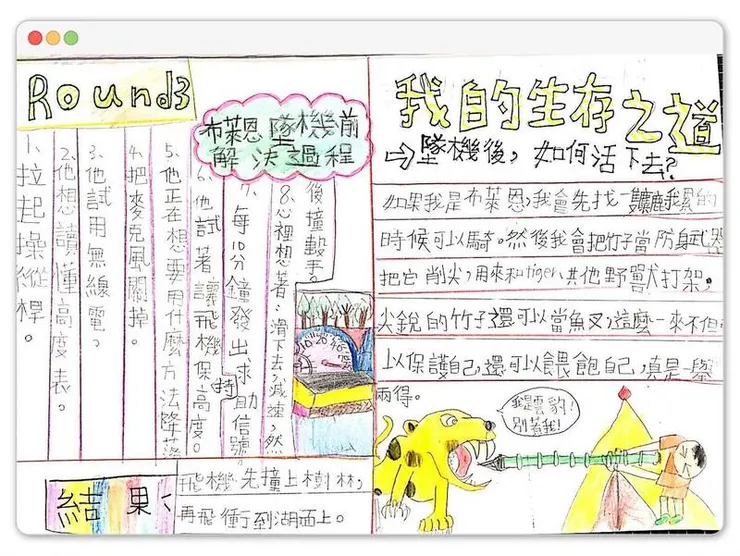 Round3
布萊恩墜機前
解決過程
1.拉起操縱桿。
2.他想讀懂高度表。
3.他試用無線電,
4.把麥克風關掉。
5.他正在想要用什麼方法降落
6.他試著讓飛機保持高度。
7.每10分鐘發出求助信號。
8.心裡想著,滑下去,減速,然
後撞擊手。
結果:
飛機先撞上樹林,
再飛衝到湖面上。
我的生存之道
⇨墜機後,如何活下去?
如果我是布萊恩,我會先找一隻麤我累的
時候可以騎。然後我會把竹子當防身武器
把它削尖,用來和tiger,其他野獸打架,
尖銳的竹子還可以當魚叉,這麼一來不但
以保護自己,還可以餵飽自己,真是一舉
兩得。
我是雲豹!
別惹我!